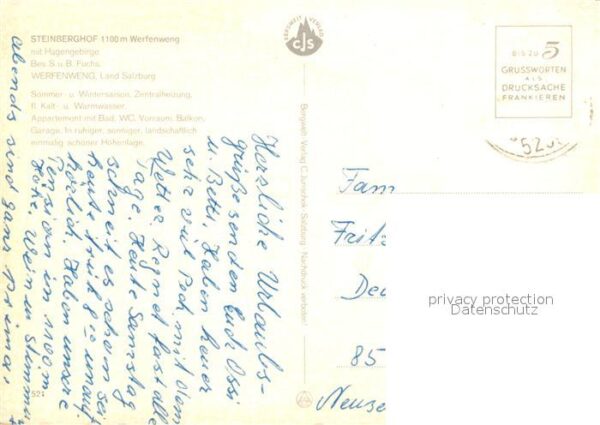 STEINBERGHOF 1100 m Werfenweng
mit Hagengebirge
Bes. S. u. B. Fuchs
WERFENWENG, Land Salzburg
Sommer- u. Wintersaison, Zentralheizung,
fl. Kalt- u. Warmwasser,
Appartement mit Bad, WC, Vorraum, Balkon,
Garage. In ruhiger, sonniger, landschaftlich
einmalig schöner Höhenlage.
521
Herzliche Urlaubs-
grüße senden Euch Ossi
u. Betti. Haben heuer
sehr viel Pech mit dem
Wetter. Regnet fast alle
Tage. Heute Samstag
schneit es schon seit
heute früh 8 h unauf-
hörlich. Haben unsere
Pension in 1100 m
Höhe. Wein u. Stimmung
abends sind ganz prima,
BERGWELT VERLAG
CJS
Bergwelt-Verlag C. Jurischek, Salzburg · Nachdruck verboten!
BIS ZU 5
GRUSSWORTEN
ALS
DRUCKSACHE
FRANKIEREN
Fam
Fritz
85
privacy protection
Datenschutz